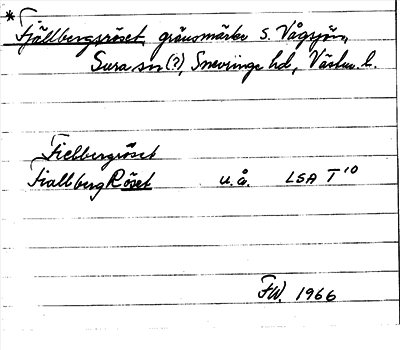 * Fjällbergsröset, gränsmärke S. Vågsjön,
Sura sn (?), Snevringe hd, Västm. l.
Fiellbergröset
Fiallberg Röset u. å. LSA T¹⁰
FW. 1966